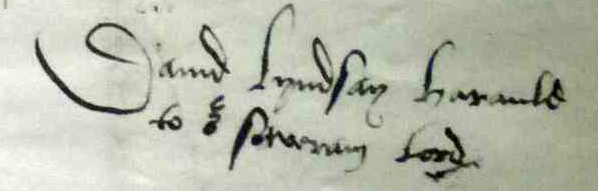 Dauid Lyndsay Harauld
to oʳ soueran lord